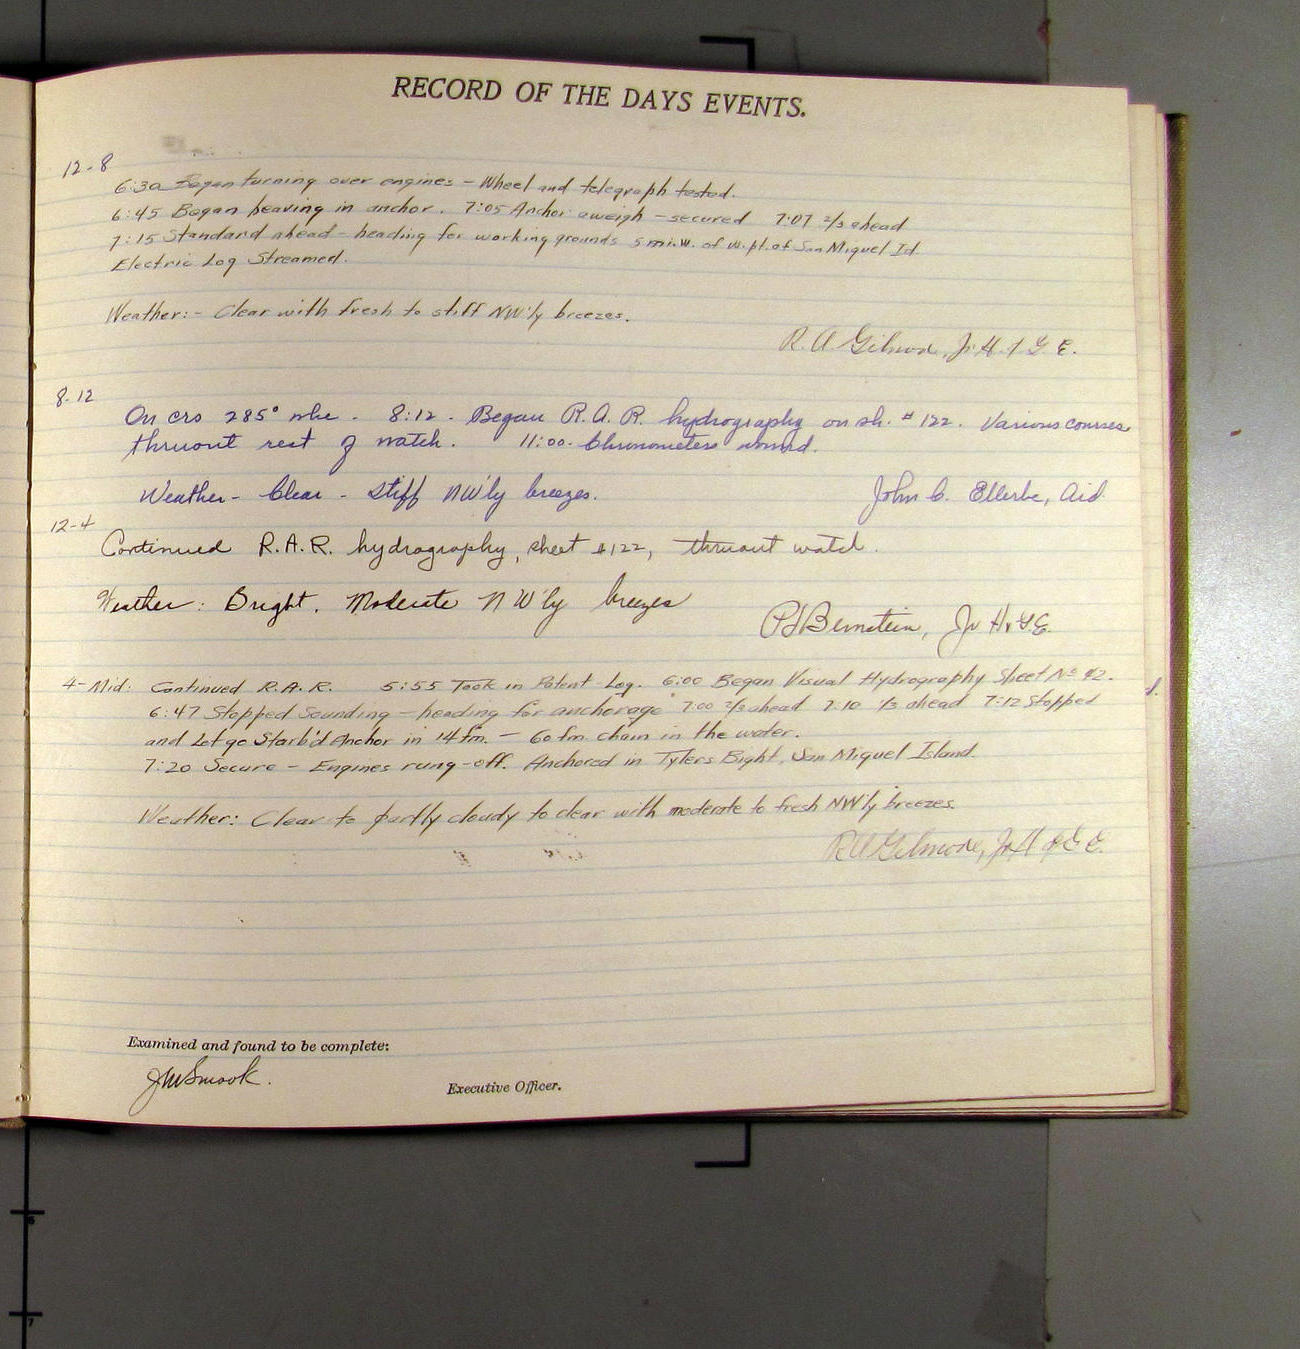 RECORD OF THE DAYS EVENTS.
12-8
6:30 Began turning over engines - Wheel and telegraph tested.
6:45 Began heaving in anchor. 7:05 Anchor aweigh - secured 7:07 2/3 ahead
7:15 Standard ahead - heading for working grounds 5 mi. W. of W. pt. of San Miguel Id.
Electric Log Streamed.
Weather:- Clear with fresh to stiff NW'ly breezes.
R. A. Gilmore, Jr. H. & G. E.
8-12
On crs 285° 8:12 - Began R.A.R. hydrography on sh. #122. Various courses
thruout rest of watch. 11:00 - Chronometers wound.
Weather - Clear - Stiff NW'ly breezes.
John C. Ellerbe, Aid
12-4
Continued R.A.R. hydrography, sheet #122, thruout watch.
Weather: Bright. Moderate NW'ly breezes
Bernstein, Jr. H. & G. E.
4-Mid: Continued R.A.R. 5:55 Took in Patent Log. 6:00 Began Visual Hydrography Sheet No
6:47 Stopped Sounding - heading for anchorage 7:00 2/3 ahead 7:10 1/3 ahead 7:12 Stopped
and Let go Starb'd Anchor in 14 fm. - 60 fm. chain in the water.
7:20 Secure - Engines rung-off. Anchored in Tylers Bight, San Miguel Island.
Weather: Clear to partly cloudy to clear with moderate to fresh NW'ly breezes.
R A Gilmore, Jr. H. & G. E.
Examined and found to be complete:
J M Smook.
Executive Officer.